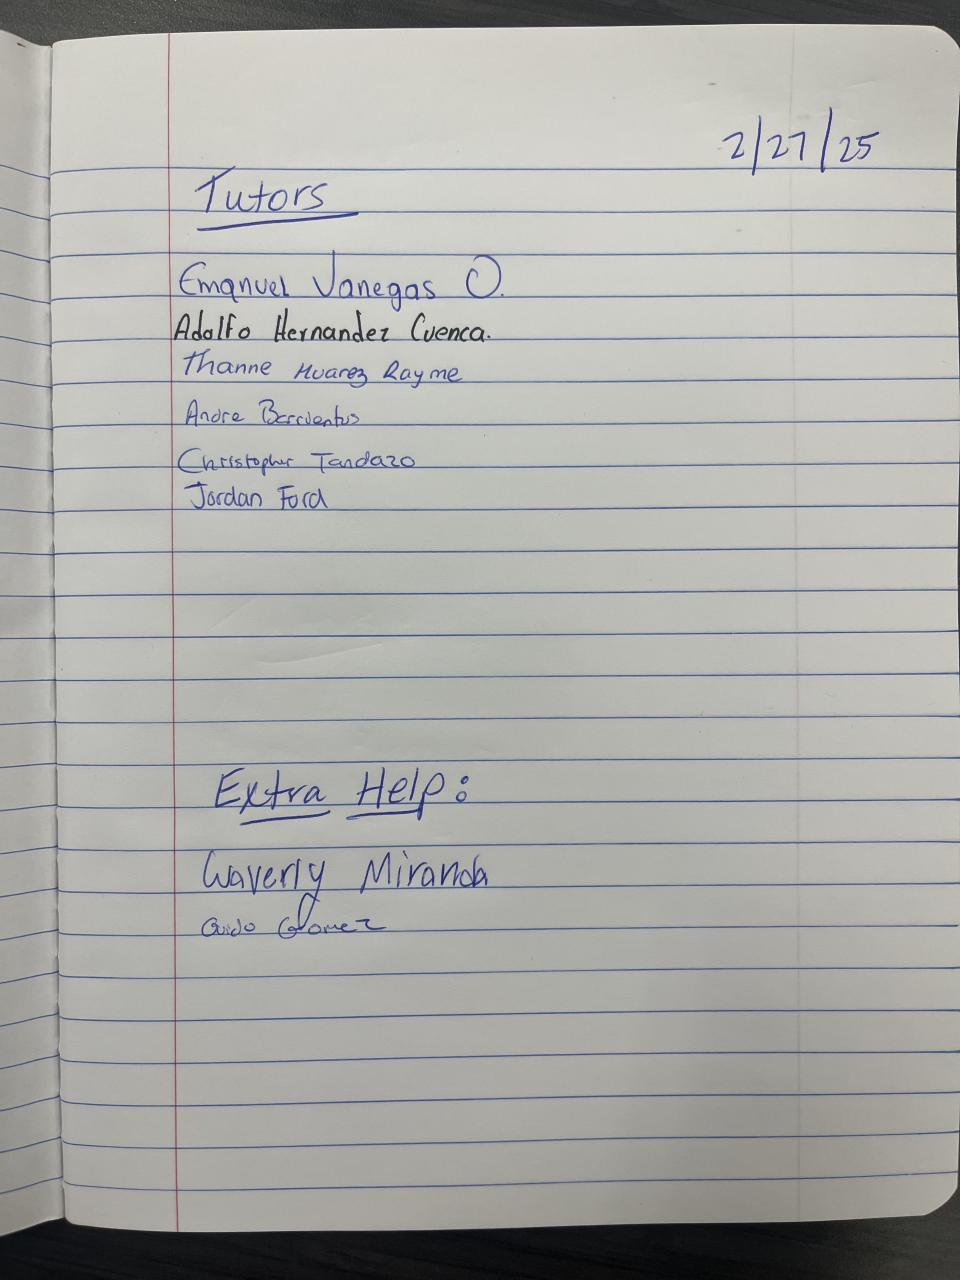 2/27/25
Tutors
Emanuel Vanegas O.
Adolfo Hernandez Cuenca.
Thanne Huarez Rayme
Andre Barrientos
Christopher Tandazo
Jordan Ford
Extra Help:
Waverly Miranda
Guido Gomez